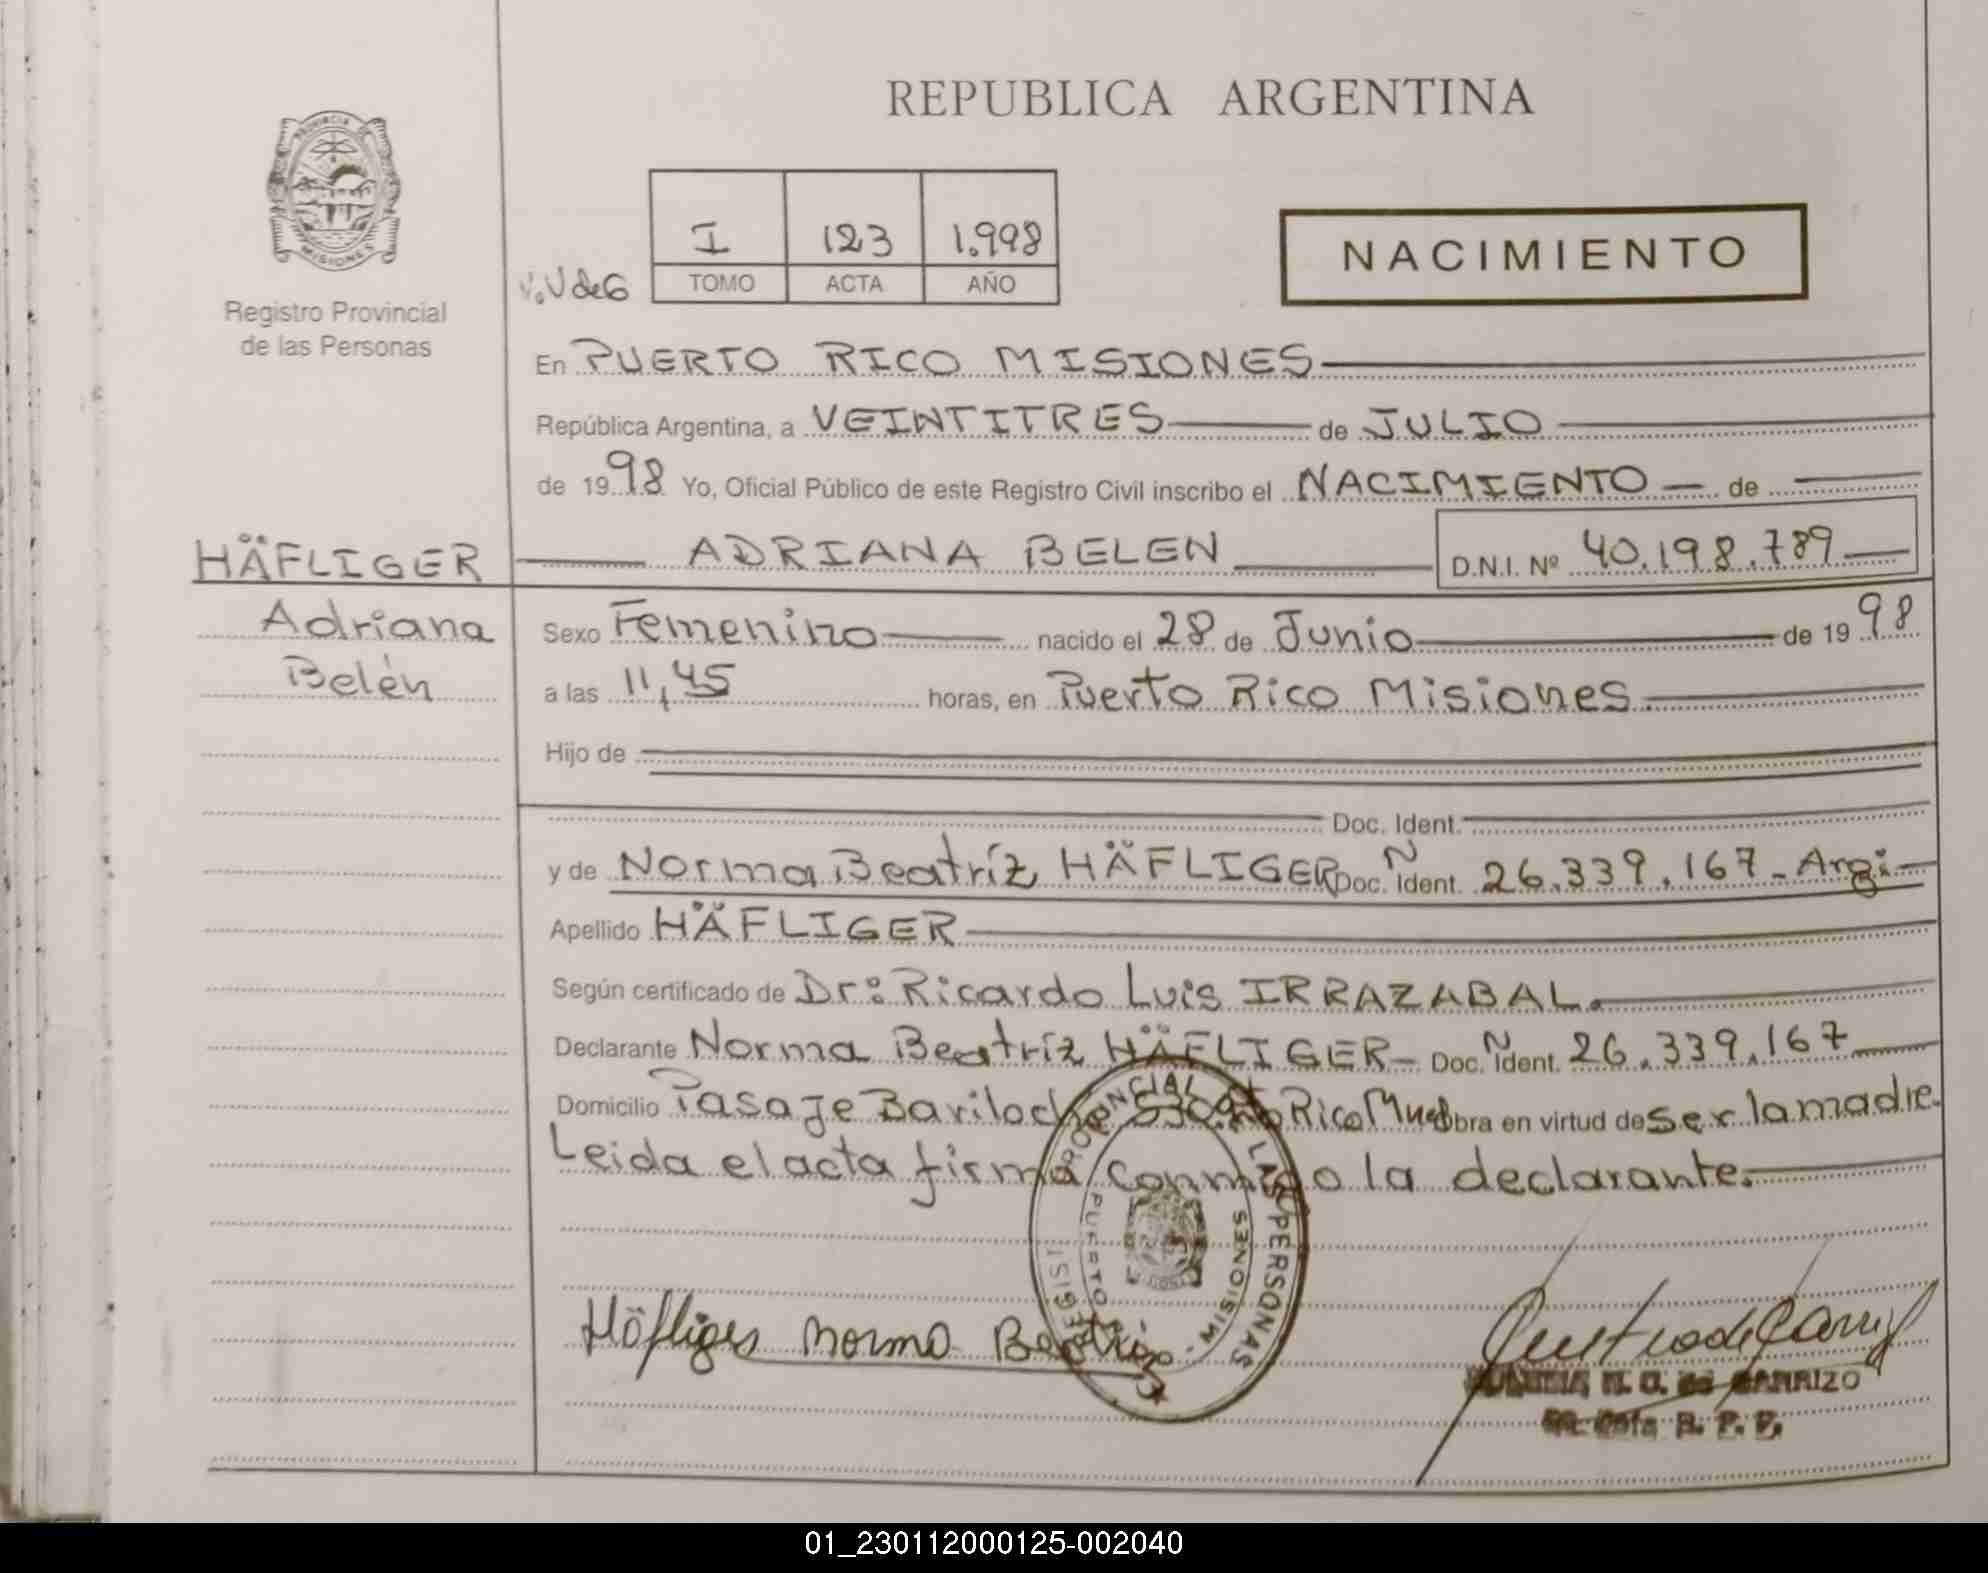 REPUBLICA ARGENTINA
PROVINCIA DE
MISIONES
Registro Provincial
de las Personas
I 123 1.998
TOMO ACTA AÑO
NACIMIENTO
En PUERTO RICO MISIONES
República Argentina, a VEINTITRES de JULIO
de 1998 Yo, Oficial Público de este Registro Civil inscribo el NACIMIENTO de
HÄFLIGER
ADRIANA BELEN
D.N.I. Nº 40.198.789
Adriana
Belén
Sexo Femenino nacido el 28 de Junio de 1998
a las 11,45 horas, en Puerto Rico Misiones
Hijo de
Doc. Ident.
y de Norma Beatríz HÄFLIGER Doc. N Ident. 26.339.167 - Argi
Apellido HÄFLIGER
Según certificado de Dr: Ricardo Luis IRRAZABAL.
Declarante Norma Beatríz HÄFLIGER - Doc. N Ident. 26.339.167
Domicilio Pasaje Bariloche Rico obra en virtud de ser la madre.
Leida el acta firma conmigo la declarante.
PROVINCIAL LAS PERSONAS
PUERTO MISIONES
Häfliger Norma Beatriz
CARRIZO
R. P. P.
01_230112000125-002040